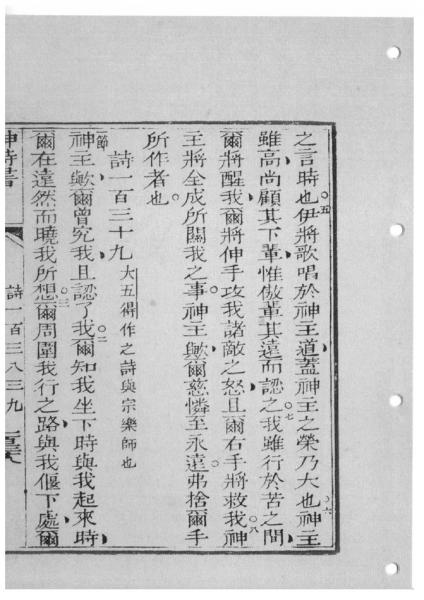 之言時也。五伊將歌唱於神主道蓋神主之榮乃大也。六神主
雖高尚顧其下輩惟傲輩其遠而認之。七我雖行於苦之間
爾將醒我爾將伸手攻我諸敵之怒且爾右手將救我。八神
主將全成所關我之事神主歟爾慈憐至永遠弗捨爾手
所作者也
詩一百三十九 大五得作之詩與宗樂師也
節神主歟爾曾究我且認了我。二爾知我坐下時與我起來時
爾在遠然而曉我所想。三爾周圍我行之路與我偃下處爾
神詩書 詩一百三八三九